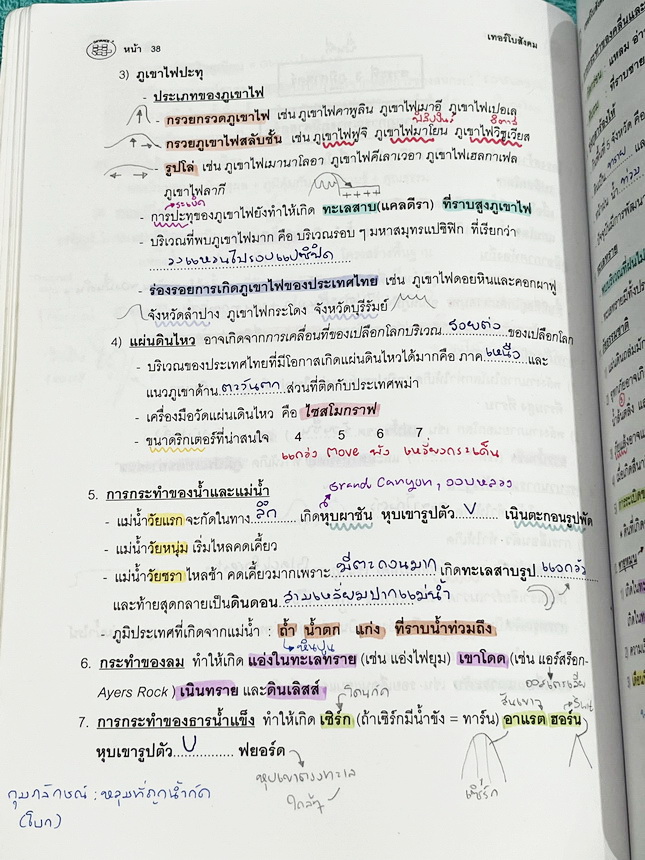 หน้า 38
เทอร์โบสังคม
3) ภูเขาไฟปะทุ
- ประเภทของภูเขาไฟ
- กรวยกรวดภูเขาไฟ เช่น ภูเขาไฟคาพูลิน ภูเขาไฟเมาอี ภูเขาไฟเปอเล
ฟิลิปปินส์ อิตาลี
- กรวยภูเขาไฟสลับชั้น เช่น ภูเขาไฟฟูจิ ภูเขาไฟมาโยน ภูเขาไฟวิซูเวียส
- รูปโล่ เช่น ภูเขาไฟเมานาโลอา ภูเขาไฟคีเลาเวอา ภูเขาไฟเฮลกาเฟล
ภูเขาไฟลากี
ระเบิด
- การปะทุของภูเขาไฟยังทำให้เกิด ทะเลสาบ(แคลดีรา) ที่ราบสูงภูเขาไฟ
- บริเวณที่พบภูเขาไฟมาก คือ บริเวณรอบ ๆ มหาสมุทรแปซิฟิก ที่เรียกว่า
วงแหวนไฟรอบแปซิฟิก
- ร่องรอยการเกิดภูเขาไฟของประเทศไทย เช่น ภูเขาไฟดอยหินและคอกผาฟู
จังหวัดลำปาง ภูเขาไฟกระโดง จังหวัดบุรีรัมย์
4) แผ่นดินไหว อาจเกิดจากการเคลื่อนที่ของเปลือกโลกบริเวณ รอยต่อ ของเปลือกโลก
- บริเวณของประเทศไทยที่มีโอกาสเกิดแผ่นดินไหวได้มากคือ ภาค เหนือ และ
แนวภูเขาด้าน ตะวันตก ส่วนที่ติดกับประเทศพม่า
- เครื่องมือวัดแผ่นดินไหว คือ ไซสโมกราฟ
- ขนาดริกเตอร์ที่น่าสนใจ 4 5 6 7
แกว่ง move พัง เหรี่ยงกระเด็น
Grand Canyon, ออบหลวง
5. การกระทำของน้ำและแม่น้ำ
- แม่น้ำวัยแรก จะกัดในทาง ลึก เกิดหุบผาชัน หุบเขารูปตัว V เนินตะกอนรูปพัด
- แม่น้ำวัยหนุ่ม เริ่มไหลคดเคี้ยว
- แม่น้ำวัยชรา ไหลช้า คดเคี้ยวมากเพราะ มีตะกอนมาก เกิดทะเลสาบรูป แอกวัว
และท้ายสุดกลายเป็นดินดอน สามเหลี่ยมปากแม่น้ำ
- ภูมิประเทศที่เกิดจากแม่น้ำ : ถ้ำ น้ำตก แก่ง ที่ราบน้ำท่วมถึง
หินปูน
6. กระทำของลม ทำให้เกิด แอ่งในทะเลทราย (เช่น แอ่งไฟยุม) เขาโดด (เช่น แอร์สร็อก-
Ayers Rock ) เนินทราย และดินเลิสส์
ออสเตรเลีย
สันเขา
7. การกระทำของธารน้ำแข็ง ทำให้เกิด เซิร์ก (ถ้าเซิร์กมีน้ำขัง = ทาร์น) อาแรต ฮอร์น
หุบเขารูปตัว U ฟยอร์ด
หุบเขาตรงทะเล
ใกล้ๆ
เซิร์ก
กุมภลักษณ์ : หลุมที่ถูกน้ำกัด
(โบก)